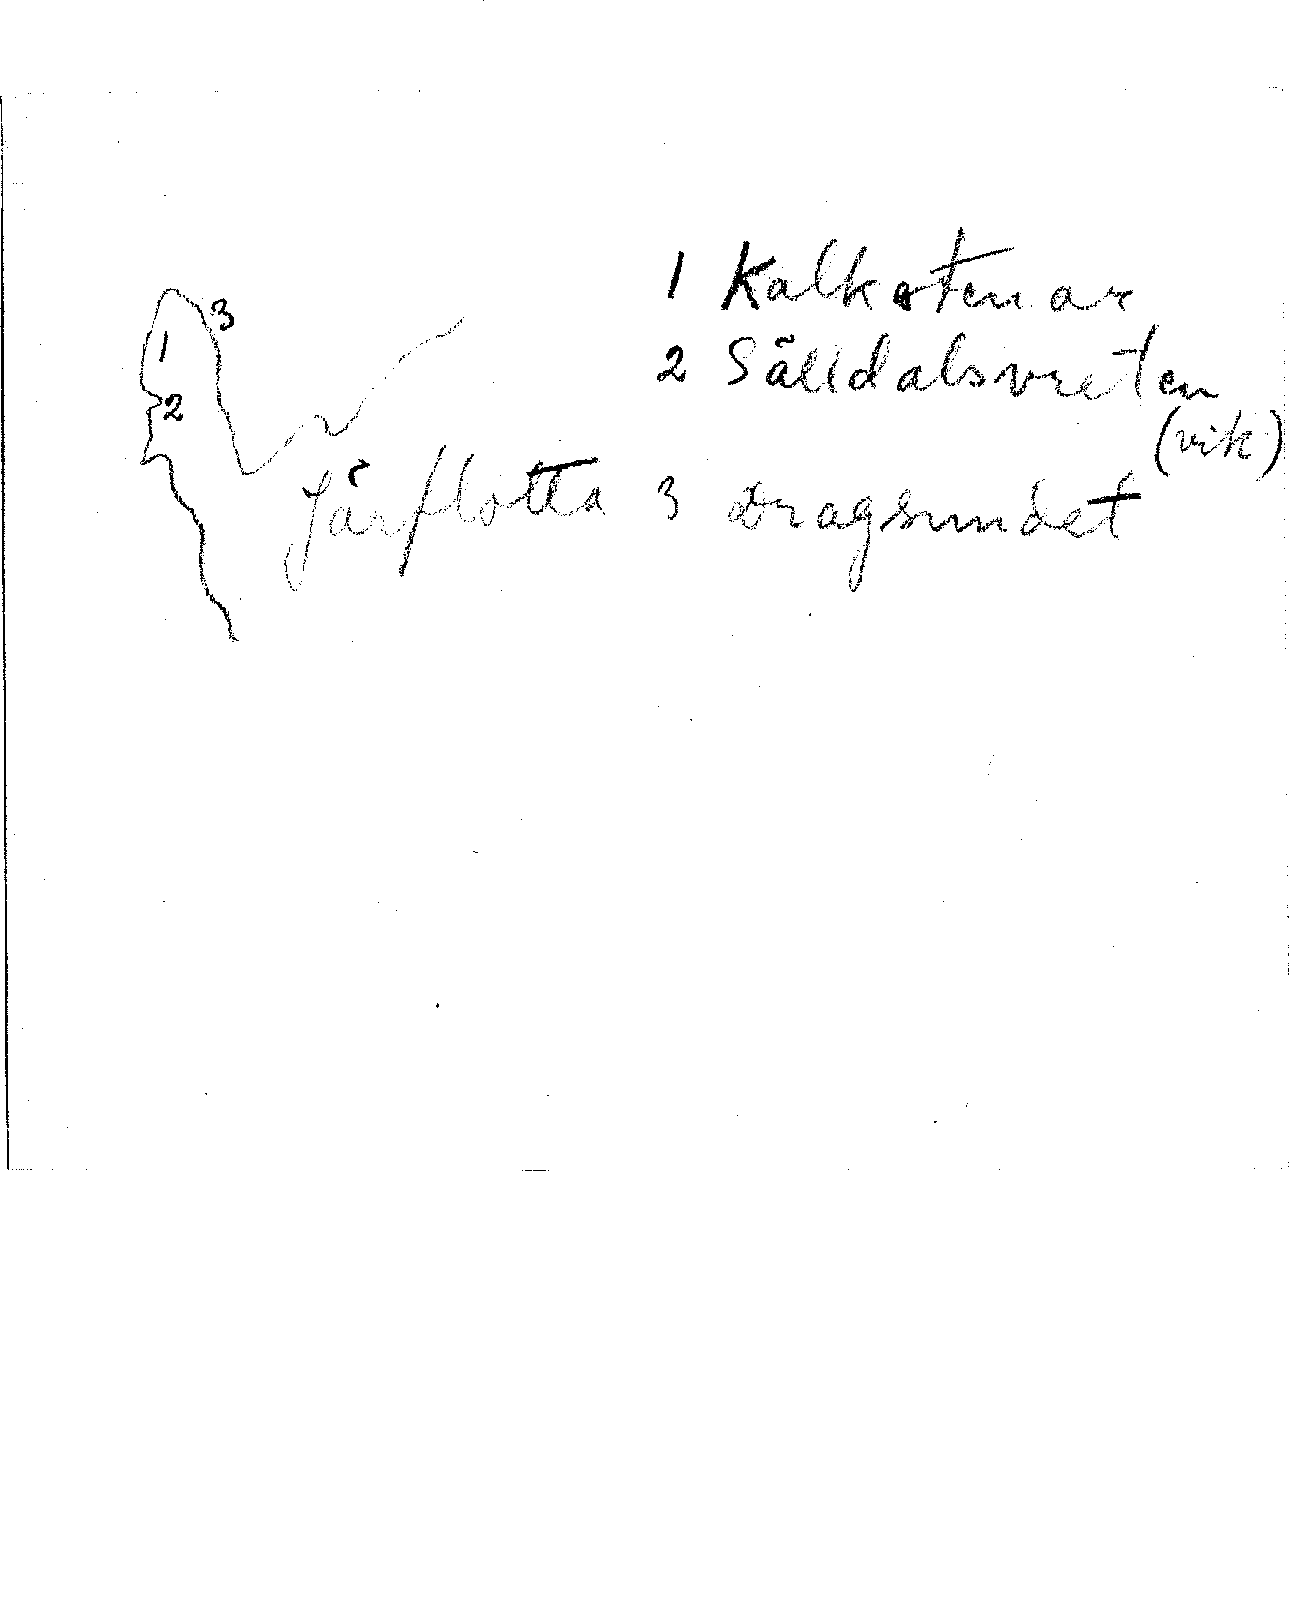 1 Kalkstenar
2 Sälldalsvreten
(vik)
3 Dragsundet
Järflotta
3
1
2